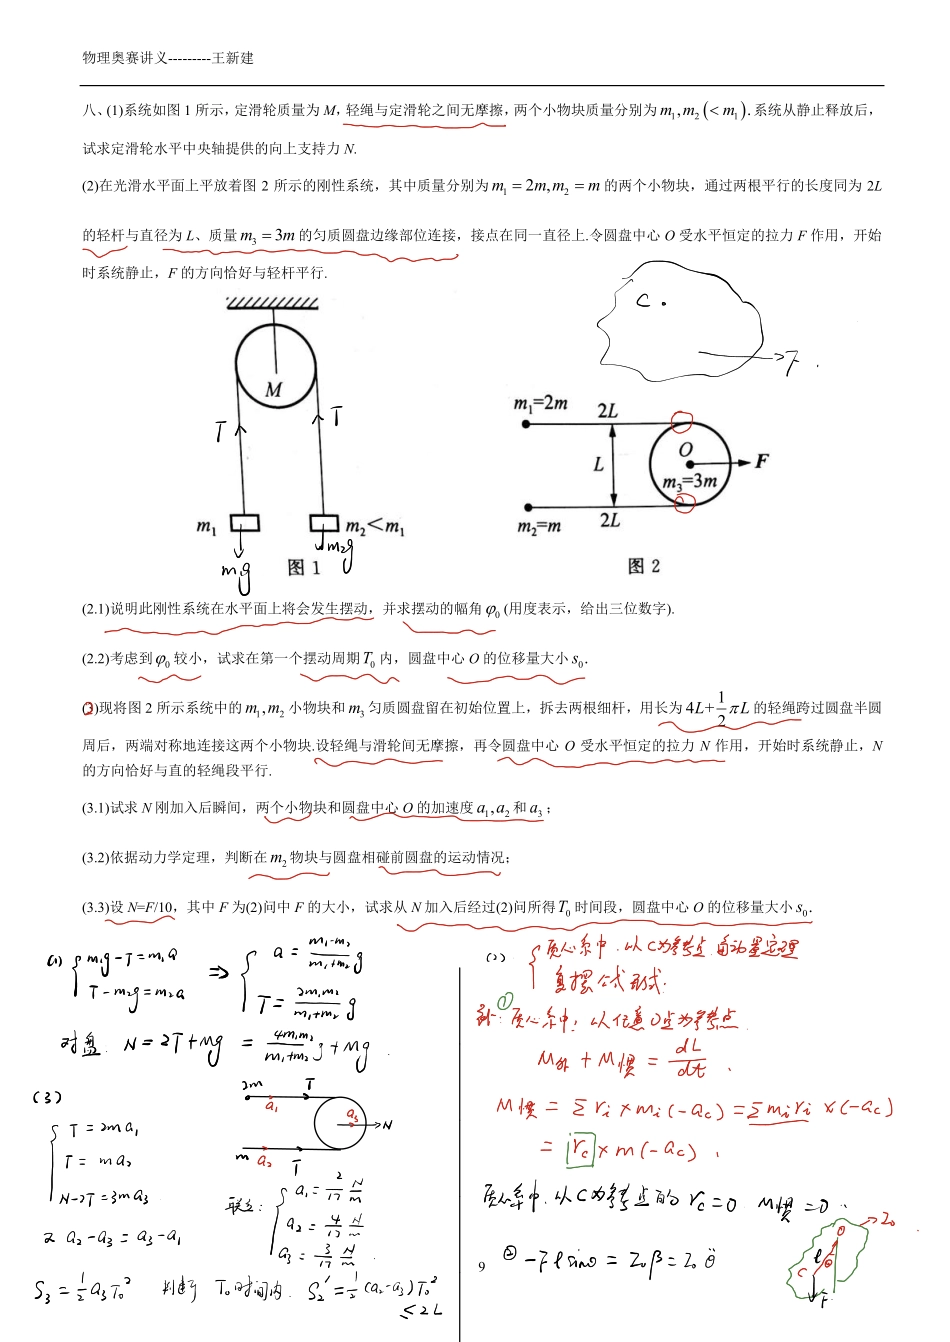 物理奥赛讲义---------王新建
八、(1)系统如图 1 所示，定滑轮质量为 M，轻绳与定滑轮之间无摩擦，两个小物块质量分别为 m₁,m₂(<m₁).系统从静止释放后，
试求定滑轮水平中央轴提供的向上支持力 N.
(2)在光滑水平面上平放着图 2 所示的刚性系统，其中质量分别为 m₁=2m,m₂=m 的两个小物块，通过两根平行的长度同为 2L
的轻杆与直径为 L、质量 m₃=3m 的匀质圆盘边缘部位连接，接点在同一直径上.令圆盘中心 O 受水平恒定的拉力 F 作用，开始
时系统静止，F 的方向恰好与轻杆平行.
C
F
M
T
T
m₁
m₂<m₁
m₁g
m₂g
图 1
m₁=2m
2L
L
O
F
m₃=3m
m₂=m
2L
图 2
(2.1)说明此刚性系统在水平面上将会发生摆动，并求摆动的幅角 φ₀ (用度表示，给出三位数字).
(2.2)考虑到 φ₀ 较小，试求在第一个摆动周期 T₀ 内，圆盘中心 O 的位移量大小 s₀.
(3)现将图 2 所示系统中的 m₁,m₂ 小物块和 m₃ 匀质圆盘留在初始位置上，拆去两根细杆，用长为 4L+1/2πL 的轻绳跨过圆盘半圆
周后，两端对称地连接这两个小物块.设轻绳与滑轮间无摩擦，再令圆盘中心 O 受水平恒定的拉力 N 作用，开始时系统静止，N
的方向恰好与直的轻绳段平行.
(3.1)试求 N 刚加入后瞬间，两个小物块和圆盘中心 O 的加速度 a₁,a₂ 和 a₃；
(3.2)依据动力学定理，判断在 m₂ 物块与圆盘相碰前圆盘的运动情况；
(3.3)设 N=F/10，其中 F 为(2)问中 F 的大小，试求从 N 加入后经过(2)问所得 T₀ 时间段，圆盘中心 O 的位移量大小 s₀.
(1) m₁g-T=m₁a
T-m₂g=m₂a
⇒ a=(m₁-m₂)/(m₁+m₂) g
T=2m₁m₂/(m₁+m₂) g
对盘 N=2T+Mg = 4m₁m₂/(m₁+m₂) g+Mg
(3)
T=2ma₁
T=ma₂
N-2T=3ma₃
又 a₂-a₃=a₃-a₁
2m T
a₁
a₃ N
m a₂ T
联立: a₁=2/17 N/m
a₂=4/17 N/m
a₃=3/17 N/m
S₃=½a₃T₀² 判断 T₀时间内 S₂'=½(a₂-a₃)T₀²
≤2L
(2) 质心系中,以C为参考点 角动量定理
复摆公式形式.
① 补:质心系中,以任意O点为参考点
M外+M惯=dL/dt.
M惯=Σrᵢ×mᵢ(-a_c)=Σmᵢrᵢ×(-a_c)
=r_c×m(-a_c).
质心系中,以C为参考点的 r_c=0 M惯=0.
② -Flsinθ=I₀β=I₀θ̈
I₀
O
l
θ
C
F
9